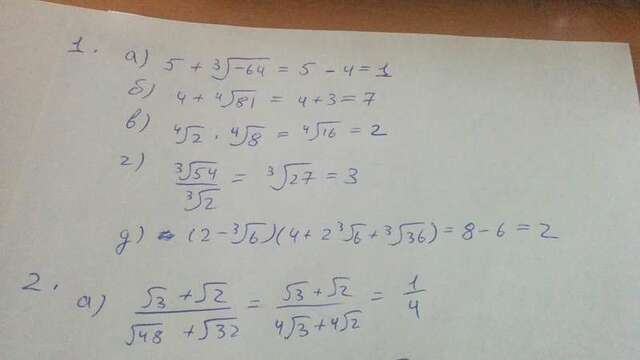 1. а) 5 + ∛-64 = 5 - 4 = 1
б) 4 + ∜81 = 4 + 3 = 7
в) ∜2 · ∜8 = ∜16 = 2
г) ∛54 / ∛2 = ∛27 = 3
д) (2 - ∛6)(4 + 2∛6 + ∛36) = 8 - 6 = 2
2. а) (√3 + √2) / (√48 + √32) = (√3 + √2) / (4√3 + 4√2) = 1/4